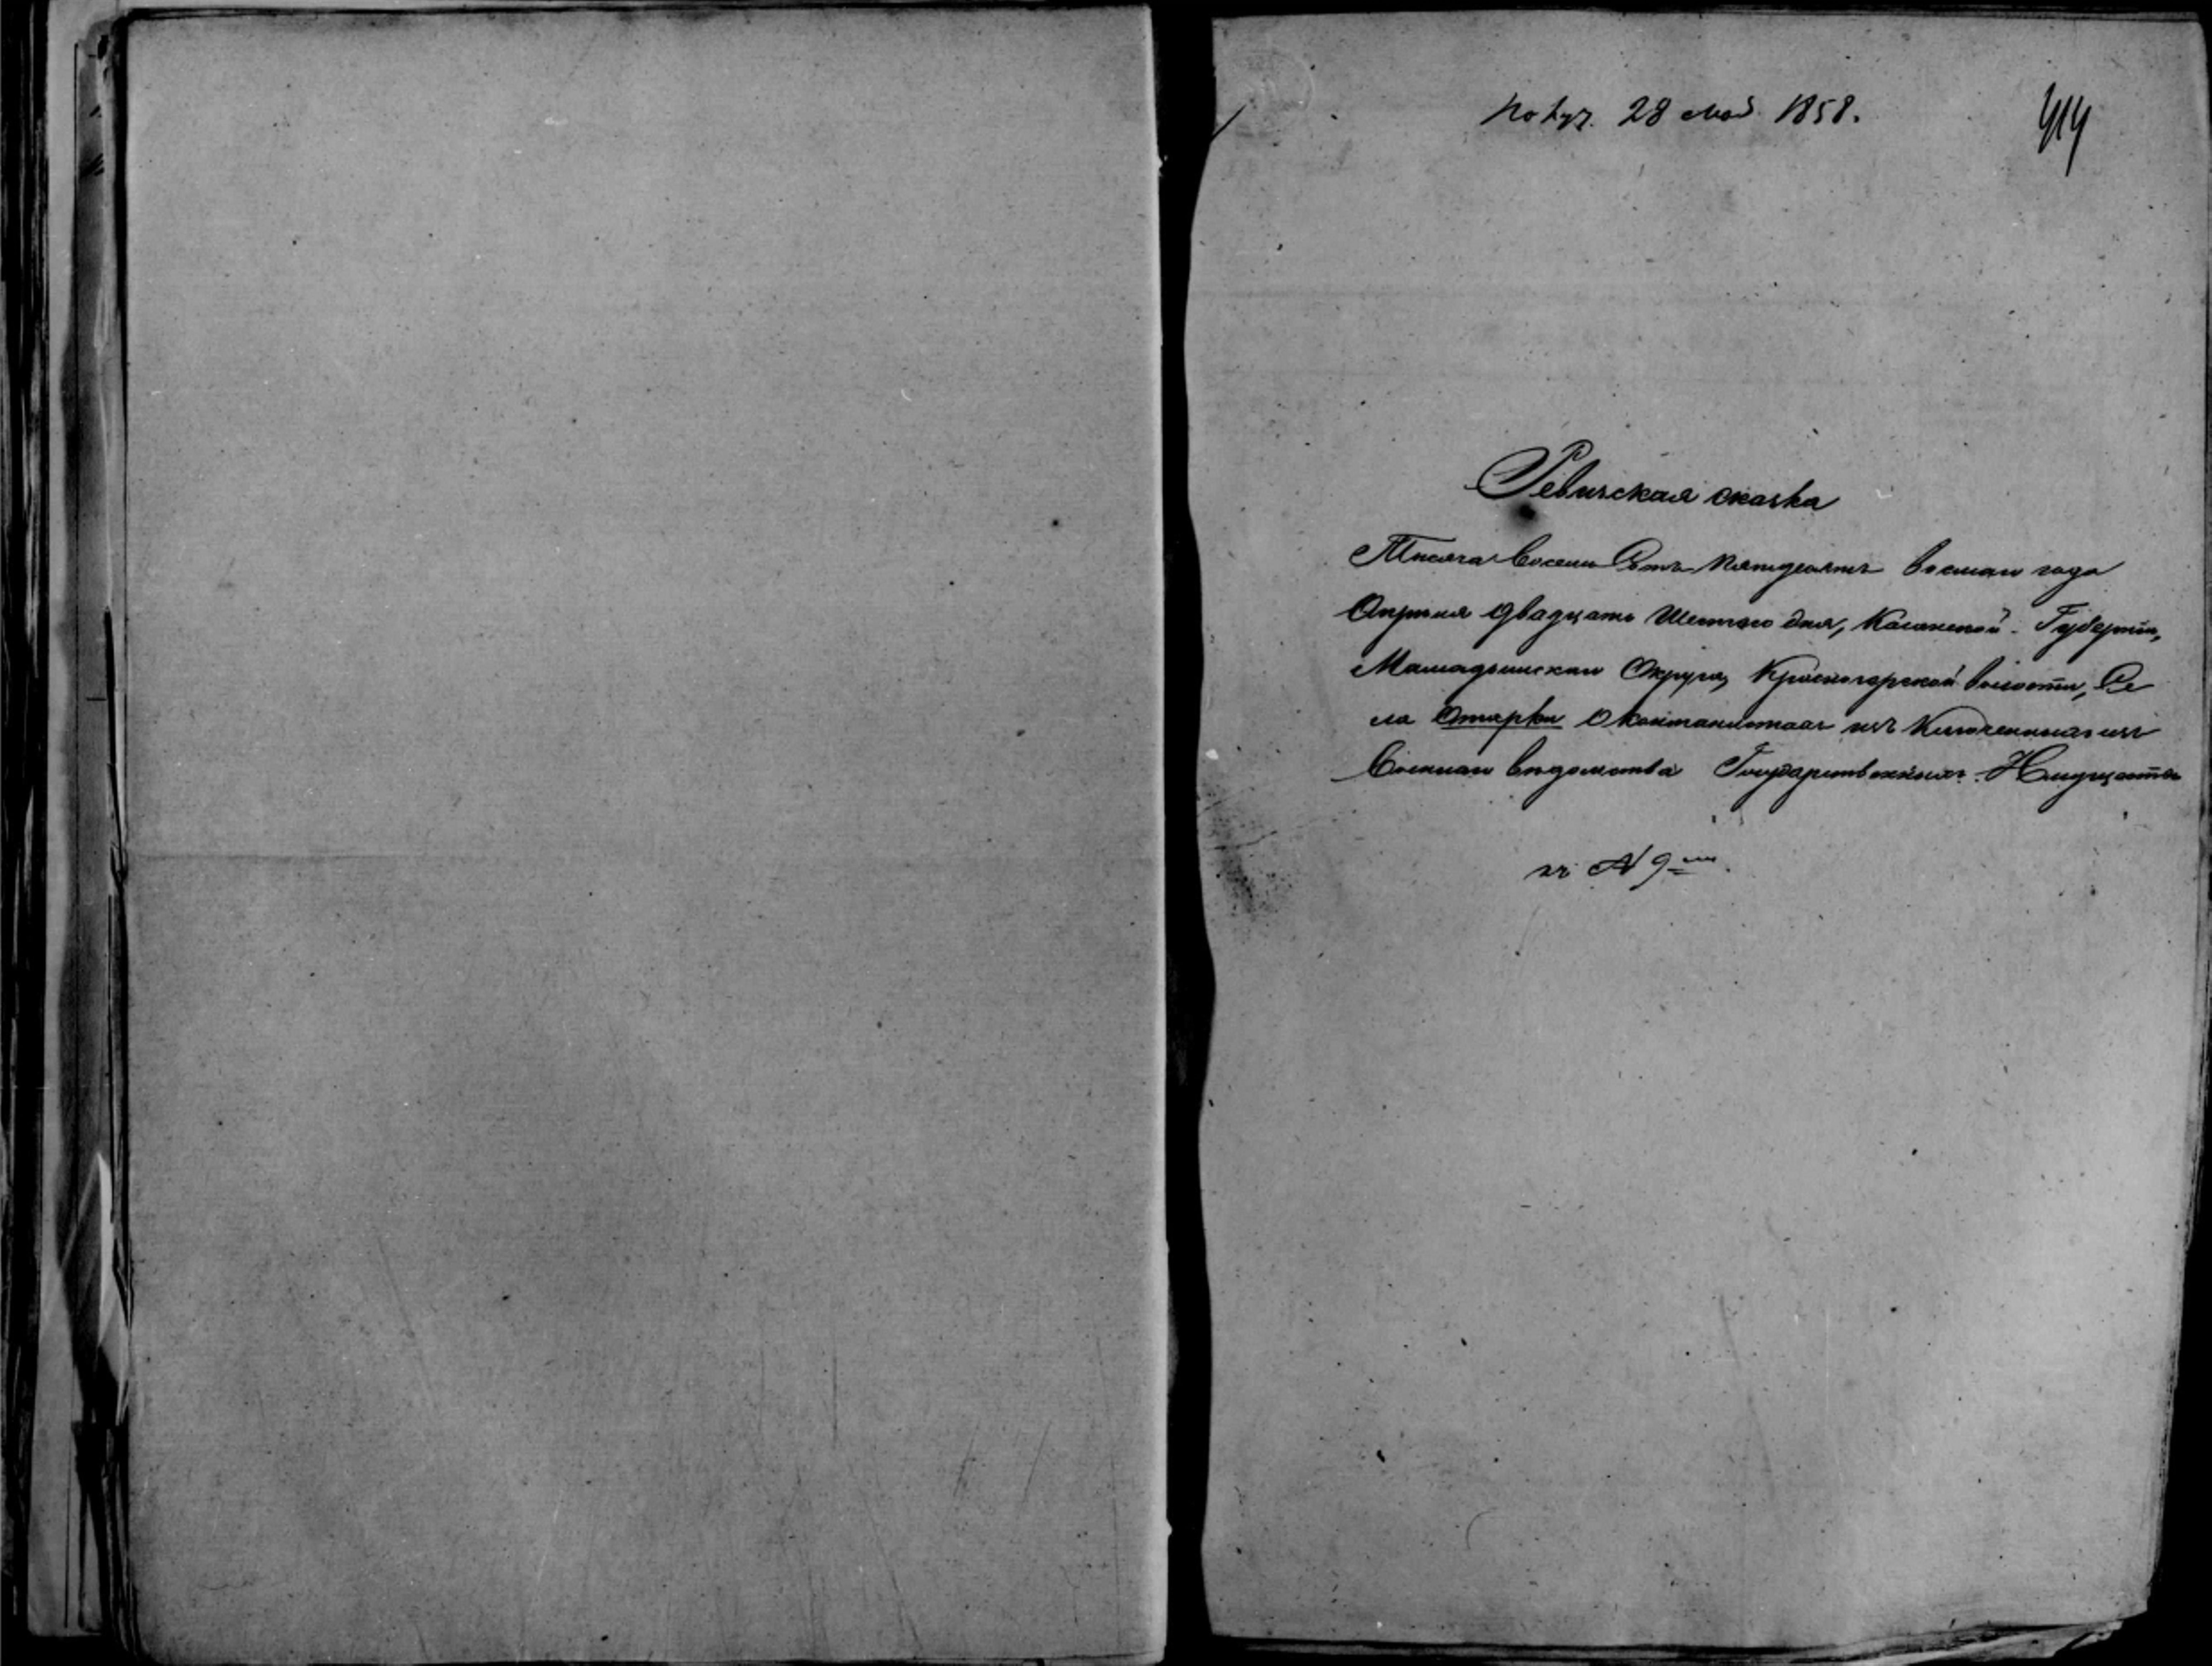 Получ. 28 Мая 1858.
414
Ревизская сказка
Тысяча Восемь Сотъ пятьдесятъ восьмаго года
Апреля двадцать Шестаго дня, Казанской Губерніи,
Мамадышскаго Округа, Красногорской волости, Се
ла Отарки О кантонистахъ изъ исключенныхъ изъ
Военнаго Ведомства Государственныхъ Имуществъ
къ № 9му.